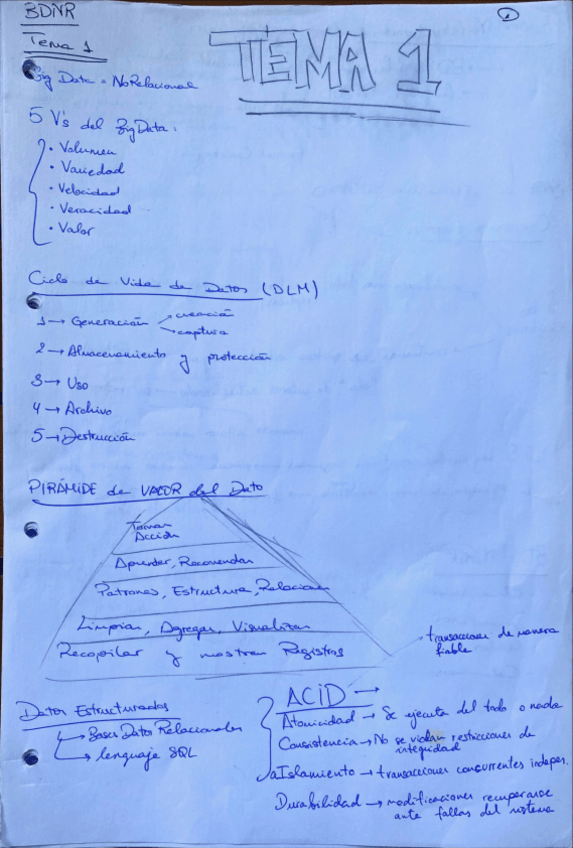 BDNR
1
Tema 1
TEMA 1
Big Data = No Relacional
5 V's del Big Data:
· Volumen
· Variedad
· Velocidad
· Veracidad
· Valor
Ciclo de Vida de Datos (DLM)
1 → Generación → creación
→ captura
2 → Almacenamiento y protección
3 → Uso
4 → Archivo
5 → Destrucción
PIRÁMIDE de VALOR del Dato
Tomar
Acción
Aprender, Recomendar
Patrones, Estructura, Relacion
Limpiar, Agregar, Visualizar
Recopilar y mostrar Registros
Datos Estructurados
→ Bases Datos Relacionales
→ lenguaje SQL
ACID → transacciones de manera
fiable
Atomicidad → Se ejecuta del todo o nada
Consistencia → No se violan restricciones de
integridad
Aislamiento → transacciones concurrentes indepen.
Durabilidad → modificaciones recuperarse
ante fallos del sistema